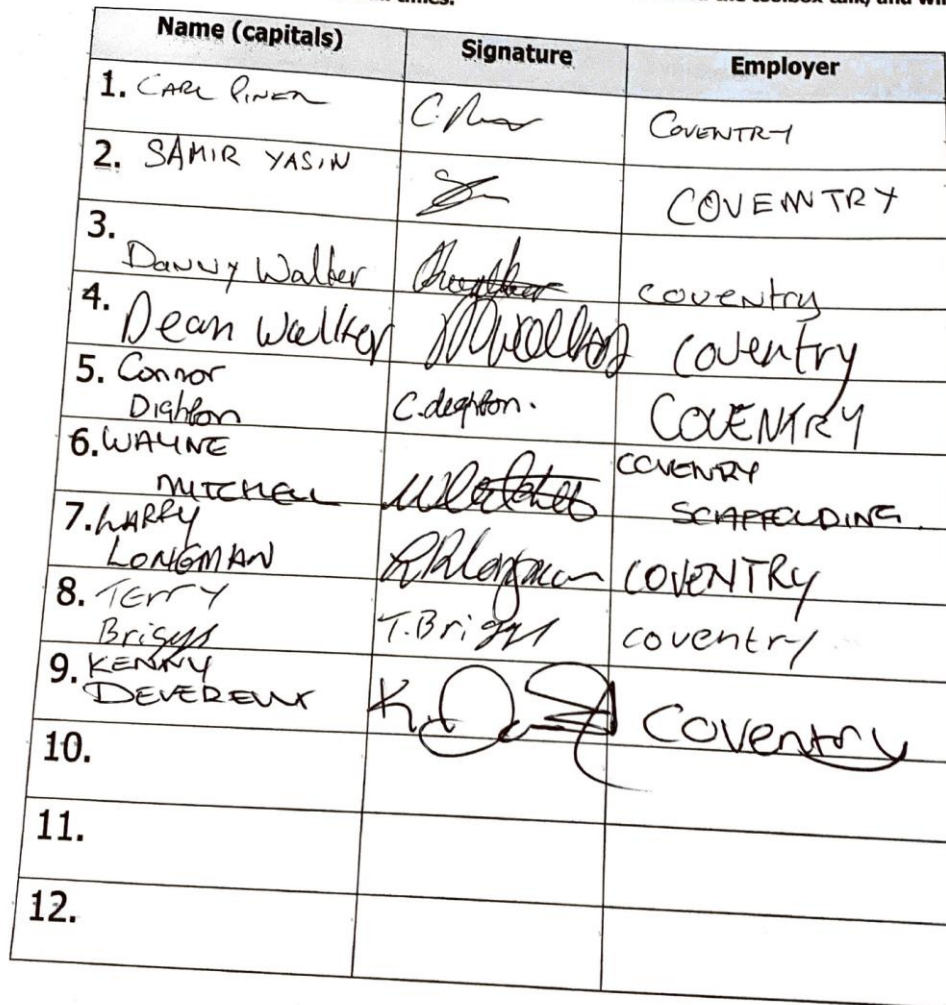 the toolbox talk, and
Name (capitals) Signature Employer
1. CARL PINER COVENTRY
2. SAMIR YASIN COVENTRY
3. Danny Walker coventry
4. Dean Walker coventry
5. Connor
Dighton C.deghton. COVENTRY
6. WAYNE COVENTRY
MITCHELL SCAFFOLDING.
7. LARRY
LONGMAN COVENTRY
8. Terry
Briggs T.Briggs coventry
9. KENNY
DEVEREUX Coventry
10.
11.
12.